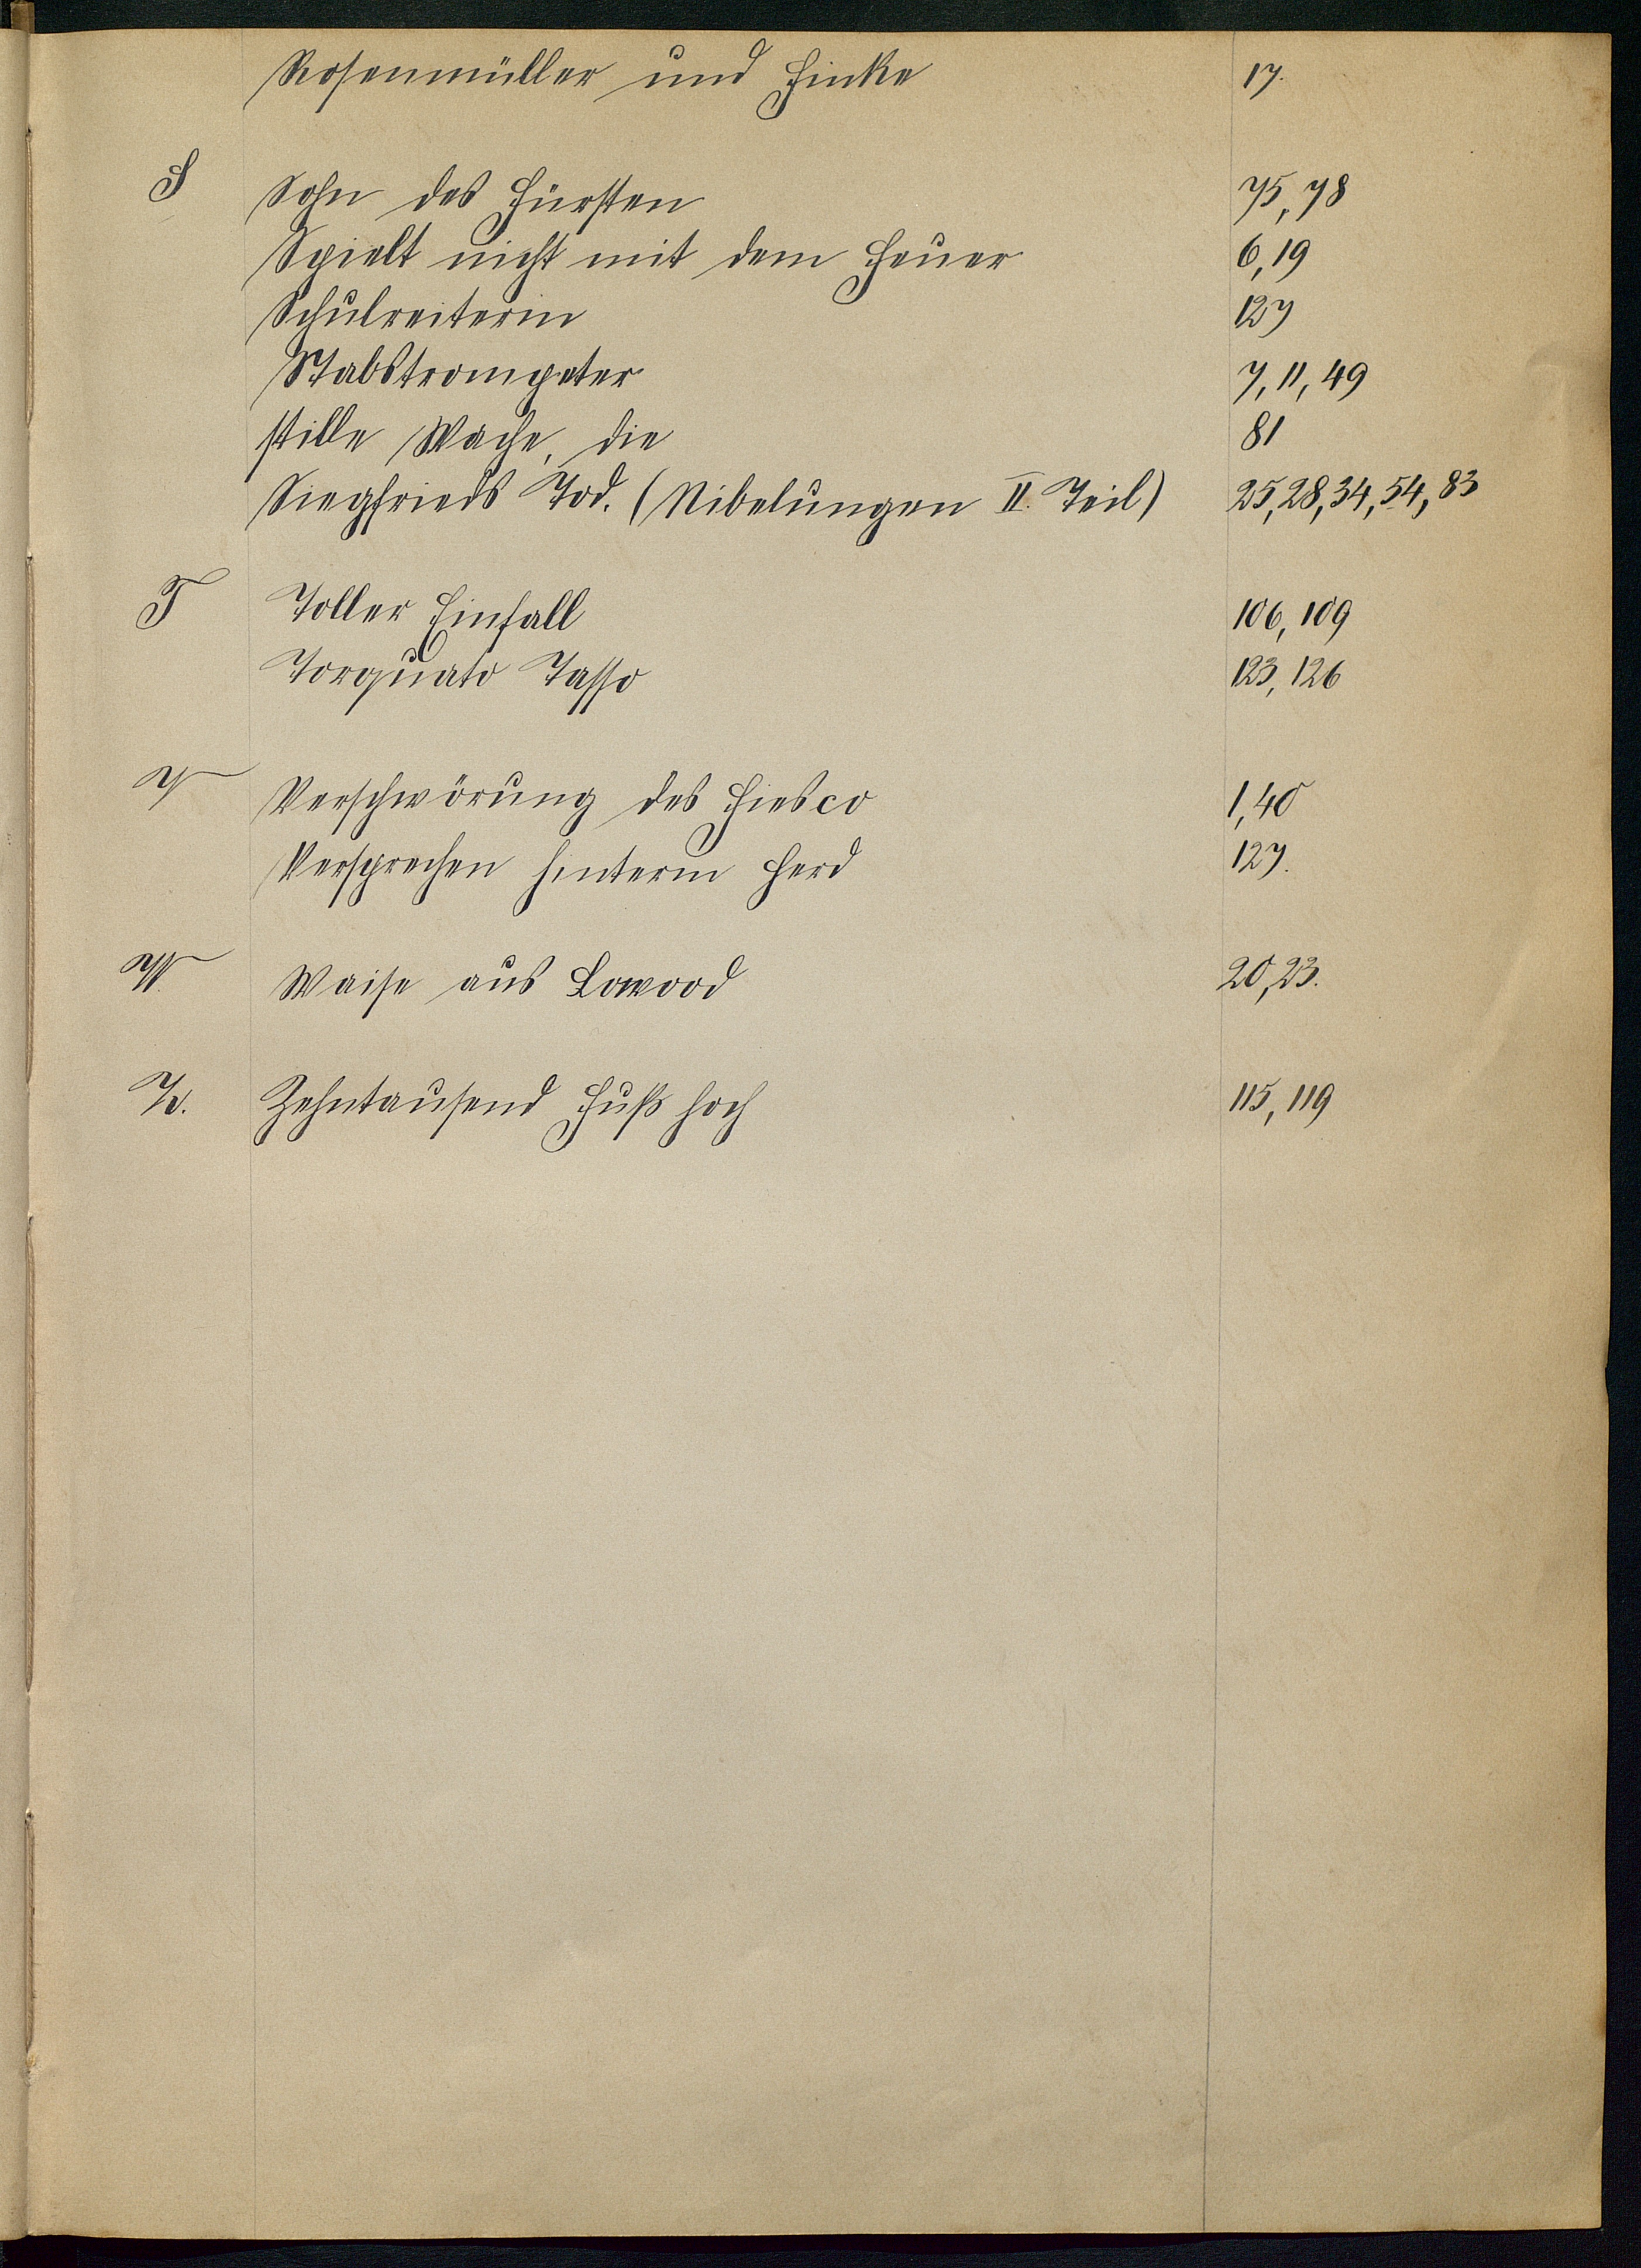 Rosenmüller und Finke 17.
S Sohn des Fürsten 75, 78
Spielt nicht mit dem Feuer 6, 19
Schulreiterin 127
Stabstrompeter 7, 11, 49
stille Wache, die 81
Siegfrieds Tod. (Nibelungen II. Teil) 25, 28, 34, 54, 83
T Toller Einfall 106, 109
Torquato Tasso 123, 126
V Verschwörung des Fiesco 1, 40
Versprechen hinterm Herd 127.
W. Waise aus Lowood 20, 23.
Z. Zehntausend Fuß hoch 115, 119